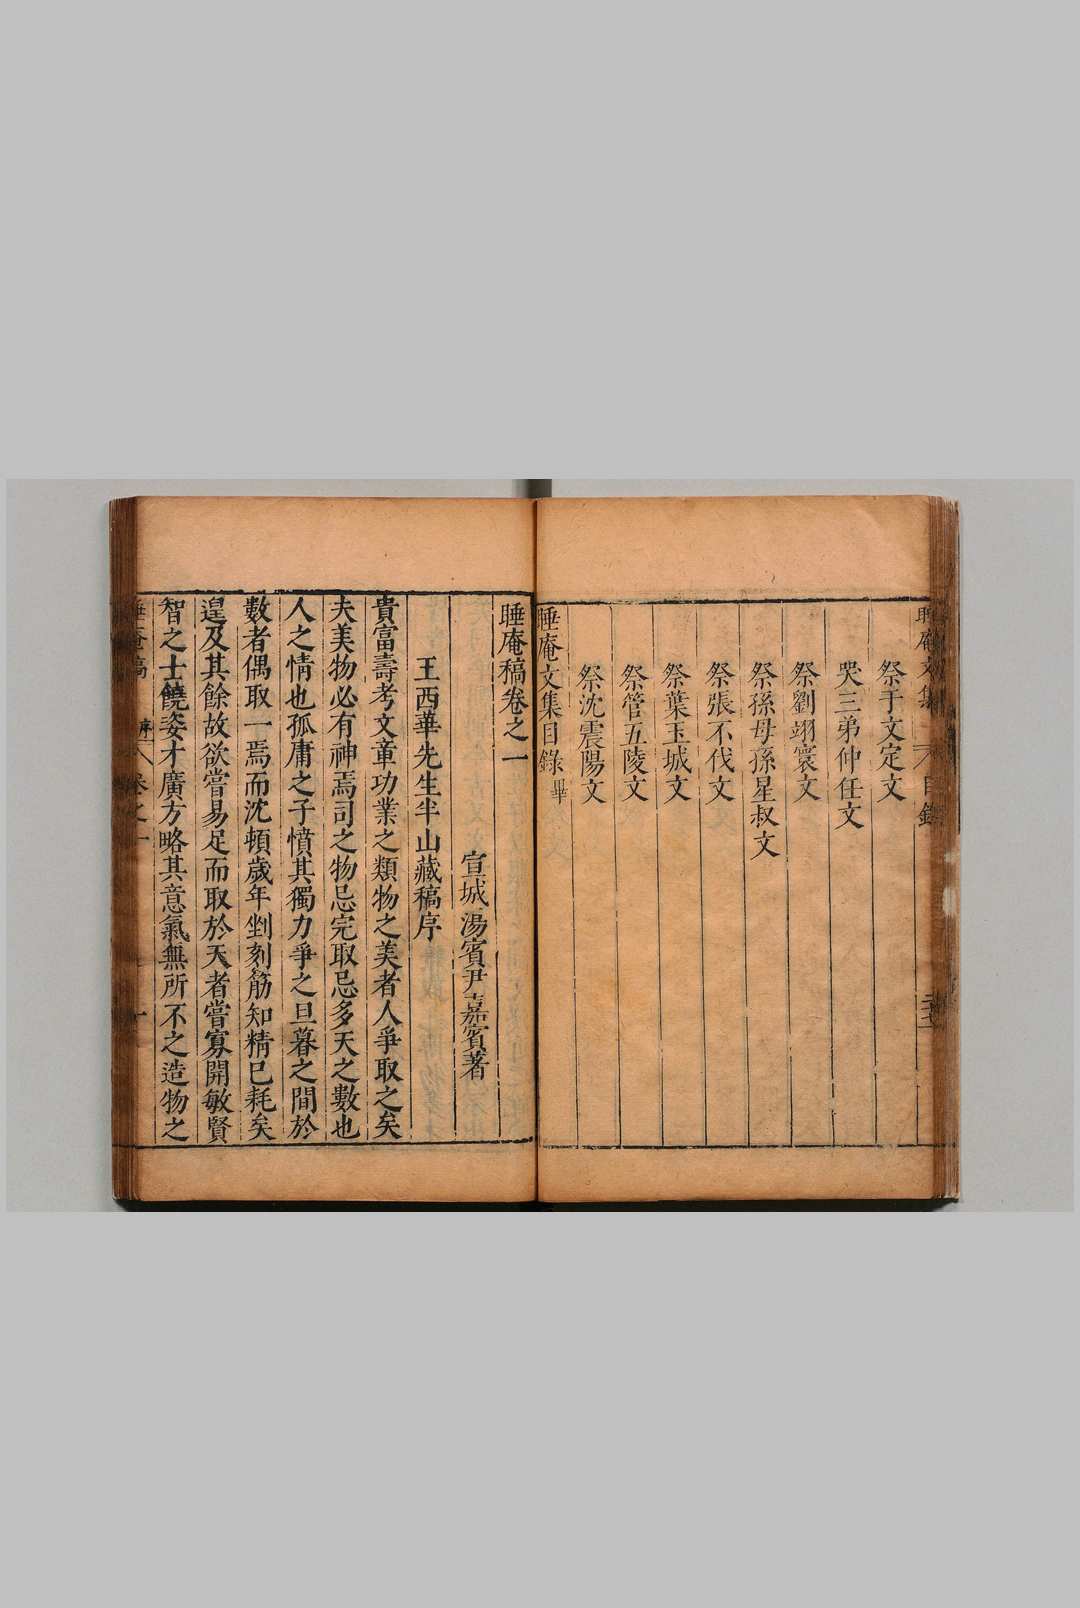 祭于文定文
哭三弟仲任文
祭劉翊寰文
祭孫母孫星叔文
祭張不伐文
祭葉玉城文
祭管五陵文
祭沈震陽文
睡庵文集目錄畢
睡庵稿卷之一
宣城湯賓尹嘉賓著
王西華先生半山藏稿序
貴富壽考文章功業之類物之美者人爭取之矣
夫美物必有神焉司之物忌完取忌多天之數也
人之情也孤庸之子憤其獨力爭之旦暮之間於
數者偶取一焉而沈頓歲年剉刻筋知精已耗矣
遑及其餘故欲嘗易足而取於天者嘗寡開敏賢
智之士饒姿才廣方略其意氣無所不之造物之
睡庵稿 序 卷之一 一